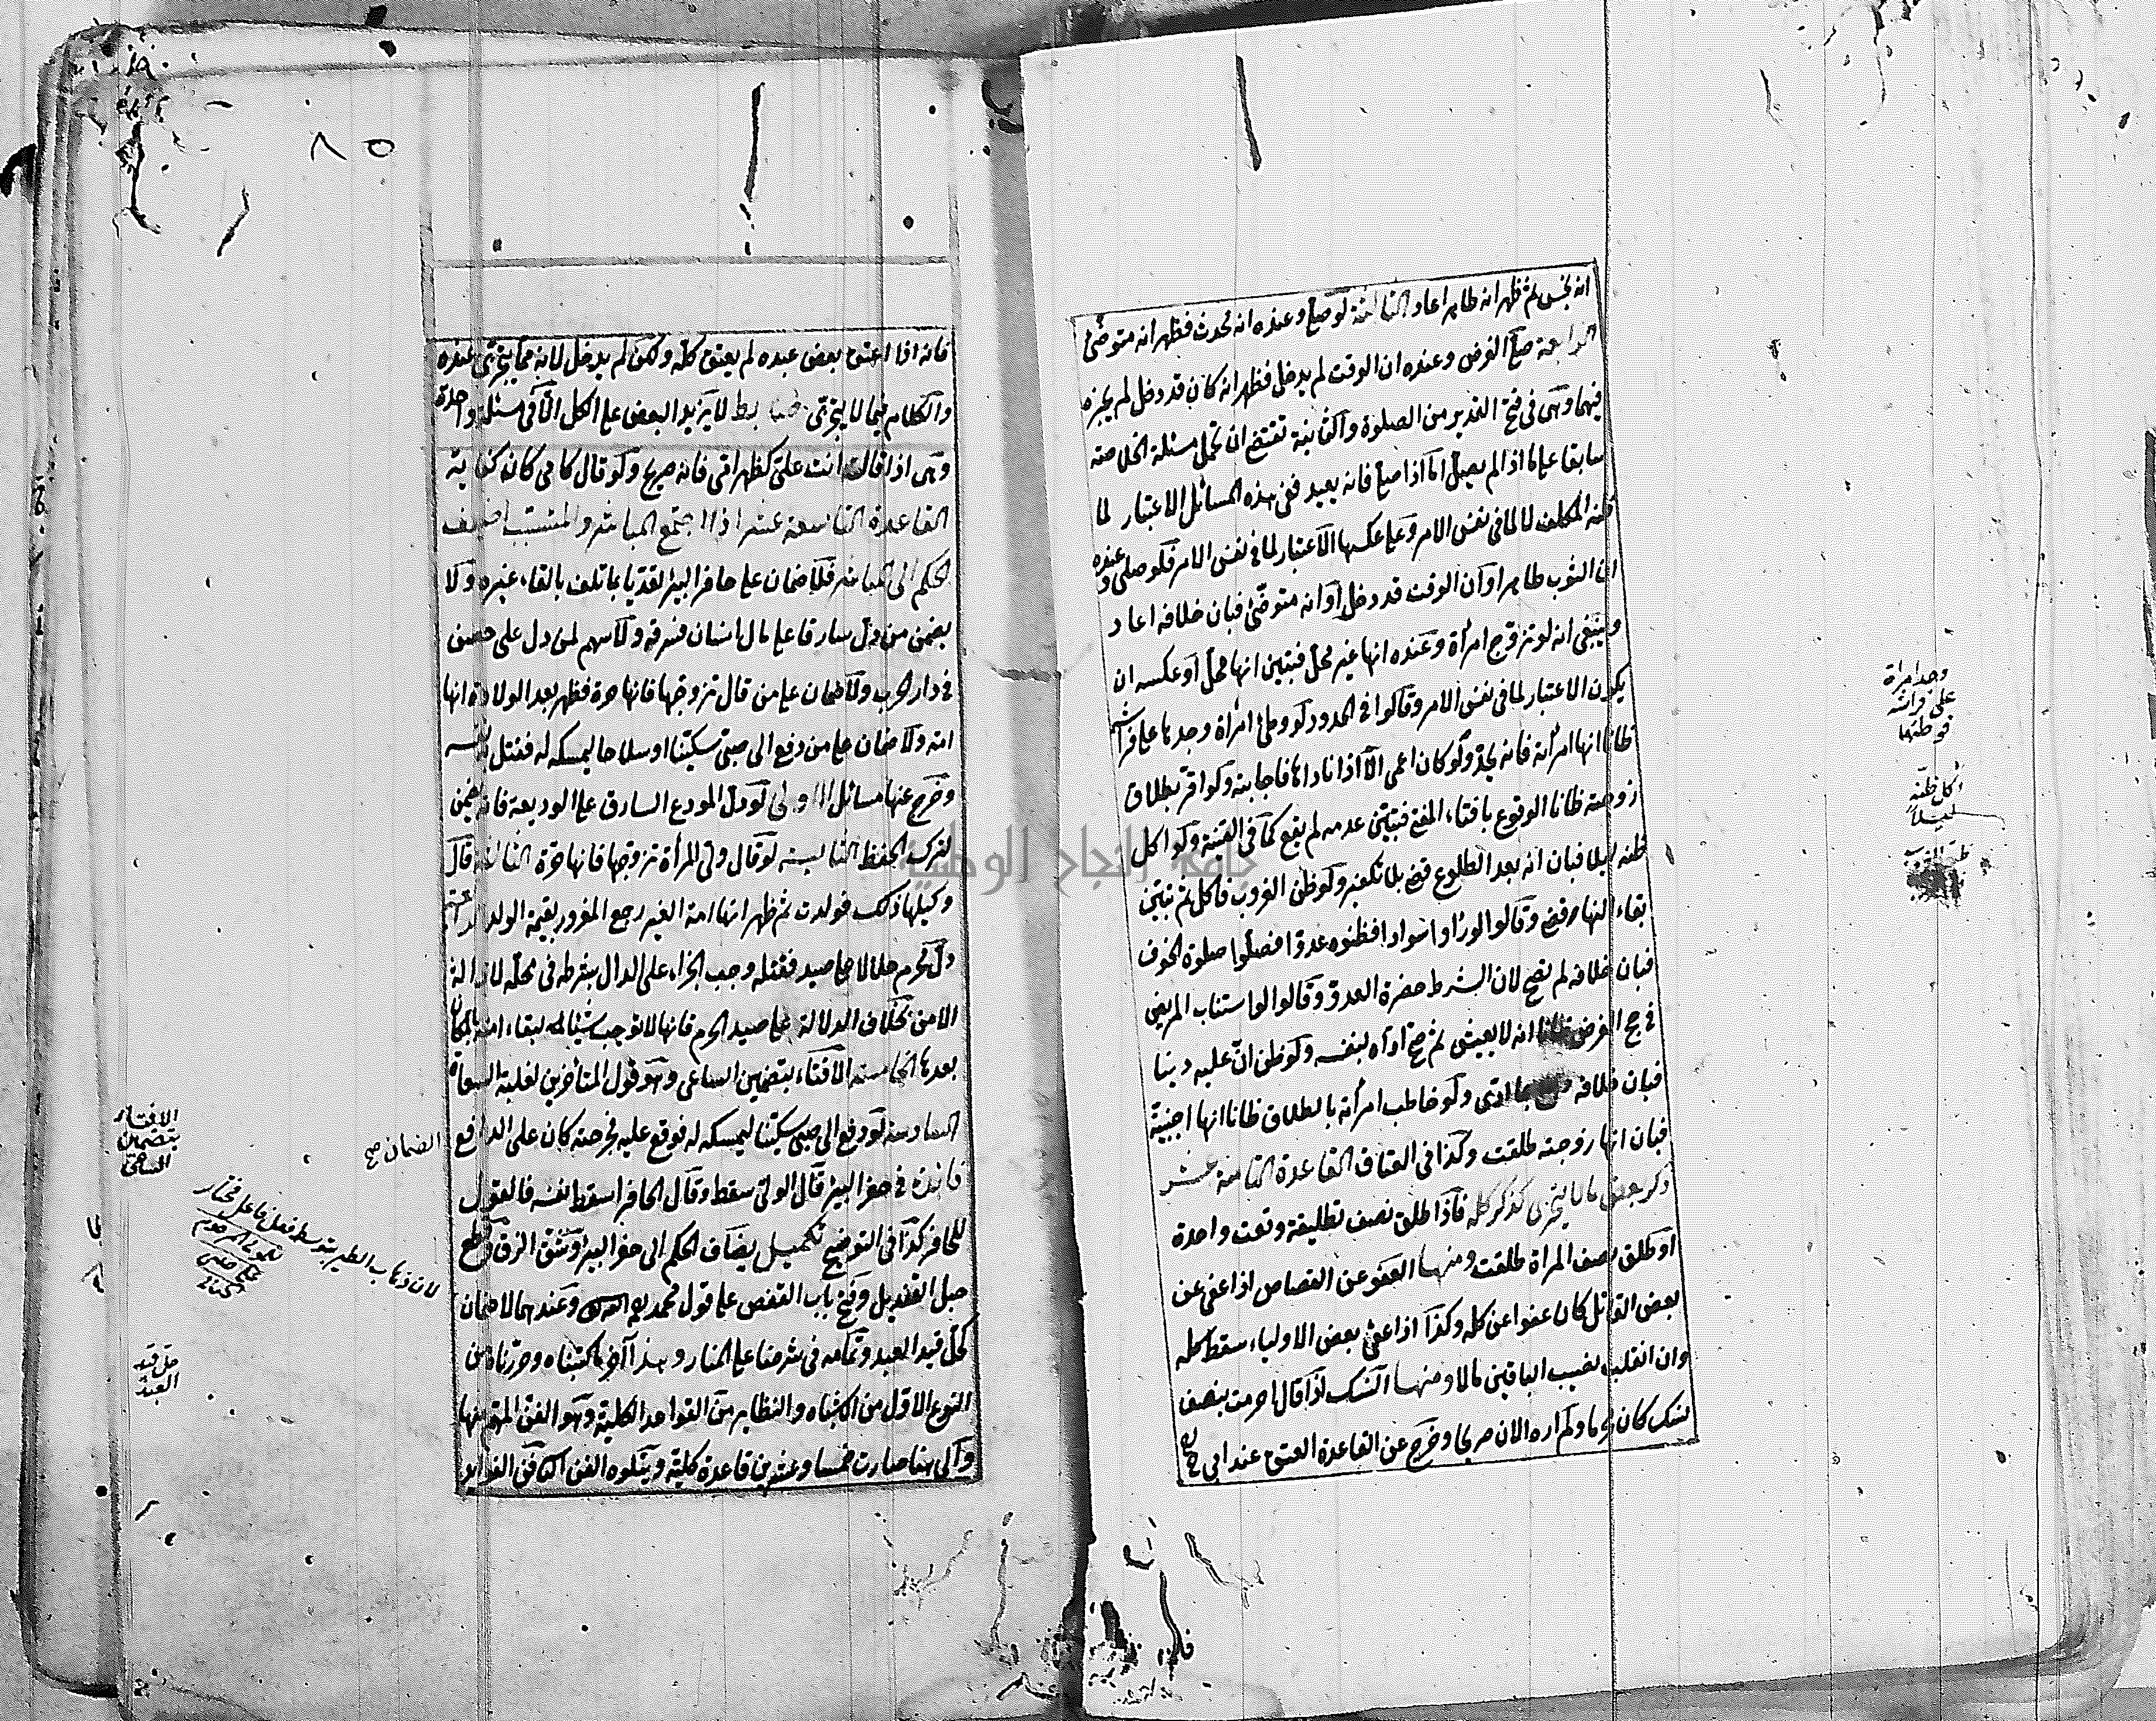 انه نجس ثم ظهر انه طاهر اعاد الثالثة لو صلى وعنده انه محدث فظهر انه متوضئ
الرابعة صلى الفرض وعنده ان الوقت لم يدخل فظهر انه كان قد دخل لم يجزه
فيهما وهى فى فتح القدير من الصلوة والثانية تقتضى ان تحمل مسئلة الخلاصة
سابقا على ما اذا لم يصل اما اذا صلى فانه يعيد ففى هذه المسائل الاعتبار لما
ظنه المكلف لا لما فى نفس الامر وعلى عكسها الاعتبار لما فى نفس الامر فلو صلى وعنده
ان الثوب طاهر او ان الوقت قد دخل او انه متوضئ فبان خلافه اعاد
وينبغى انه لو تزوج امرأة وعنده انها غير محل فتبين انها محل او عكسه ان
يكون الاعتبار لما فى نفس الامر وقالوا فى الحدود لو وطئ امرأة وجدها على فراشه
ظانا انها امرأته فانه يحد ولو كان اعمى الا اذا ناداها فاجابته ولو اقر بطلاق
زوجته ظانا الوقوع بافتاء المفتى فتبين عدمه لم يقع كما فى القنية ولو اكل
ظنه ليلا فبان انه بعد الطلوع قضى بلا تكفير ولو ظن الغروب فاكل ثم تبين
بقاء النهار قضى وقالوا لو رأوا سوادا فظنوه عدوا فصلوا صلوة الخوف
فبان خلافه لم تصح لان الشرط حضرة العدو وقالوا لو استناب المريض
فى حج الفرض ظانا انه لا يعيش ثم صح اداه بنفسه ولو ظن ان عليه دينا
فبان خلافه بما ادى ولو خاطب امرأته بالطلاق ظانا انها اجنبية
فبان انها زوجته طلقت وكذا فى العتاق القاعدة الثامنة عشر
ذكر بعض ما لا يتجزى كذكر كله فاذا طلق نصف تطليقة وقعت واحدة
او طلق نصف المراة طلقت ومنها العفو عن القصاص اذا عفى عن
بعض القاتل كان عفوا عن كله وكذا اذا عفى بعض الاولياء سقط كله
وان انقلب نصيب الباقين مالا ومنها النسك اذا قال احرمت بنصف
نسك كان محرما ولم اره الان صريحا وخرج عن القاعدة العتق عند ابى ح
وجد امراة
على فراشه
فوطئها
اكل ظنه
ليلا
فانه اذا اعتق بعض عبده لم يعتق كله ولكن لم يدخل لانه مما يتجزى عنده
والكلام فيما لا يتجزى ضابط لا يزيد البعض على الكل الا فى مسئلة واحدة
وهى اذا قال انت على كظهر امى فانه صريح ولو قال كامى كان كناية
القاعدة التاسعة عشر اذا اجتمع المباشر والمتسبب اضيف
الحكم الى المباشر فلا ضمان على حافر البئر تعديا بما تلف بالقاء غيره ولا
يضمن من دل سارقا على مال انسان فسرقه ولا سهم لمن دل على حصن
فى دار الحرب ولا ضمان على من قال تزوجها فانها حرة فظهر بعد الولادة انها
امة ولا ضمان على من دفع الى صبى سكينا او سلاحا ليمسكه له فقتل به نفسه
وخرج عنها مسائل الاولى لو دل المودع السارق على الوديعة فانه يضمن
لترك الحفظ الثانية لو قال ولى المرأة تزوجها فانها حرة الثالثة قال
وكيلها ذلك فولدت ثم ظهر انها امة الغير رجع المغرور بقيمة الولد الرابعة
دل محرم حلالا على صيد فقتله وجب الجزاء على الدال بشرطه فى محله لازالة
الامن بخلاف الدلالة على صيد الحرم فانها لا توجب شيئا له لبقاء امنه بالمكان
بعدها الخامسة الافتاء بتضمين الساعى وهو قول المتأخرين لغلبة السعاة
السادسة لو دفع الى صبى سكينا ليمسكه له فوقع عليه فجرحته كان على الدافع
فائدة فى حفر البئر قال الولى سقط وقال الحافر اسقط نفسه فالقول
للحافر كذا فى التوضيح تكميل يضاف الحكم الى حفر البئر وشق الزق وقطع
حبل القنديل وفتح باب القفص على قول محمد وعندهما لا ضمان
كحل قيد العبد وتمامه فى شرحنا على المنار وهذا آخر ما كتبناه وحررناه من
النوع الاول من الاشباه والنظاير من القواعد الكلية وهو الفن المهم منها
والى هنا صارت خمسا وعشرين قاعدة كلية ويتلوه الفن الثانى الفوايد
٨٥
الضمان صح
الافتاء
بتضمين
الساعى
لان ذهاب الطير بتوسط فعل فاعل مختار
حل قيد
العبد
جامعة النجاح الوطنية